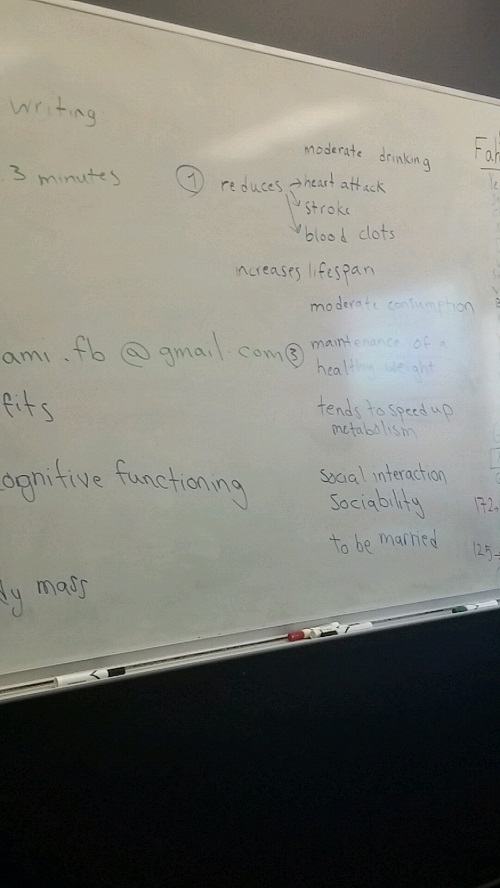 writing
3 minutes
ami.fb @ gmail.com
fits
ognitive functioning
dy mass
moderate drinking
① reduces → heart attack
stroke
blood clots
increases lifespan
moderate consumption
③ maintenance of a
healthy weight
tends to speed up
metabolism
social interaction
Sociability
to be married
Fah
172,
125,